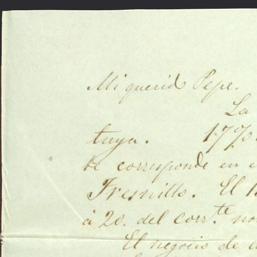 Mi querido Pepe.
La
tuya. 17%
be corresponde en
Fresnillo. El 1
á 20. del corr.te no
El negocio de